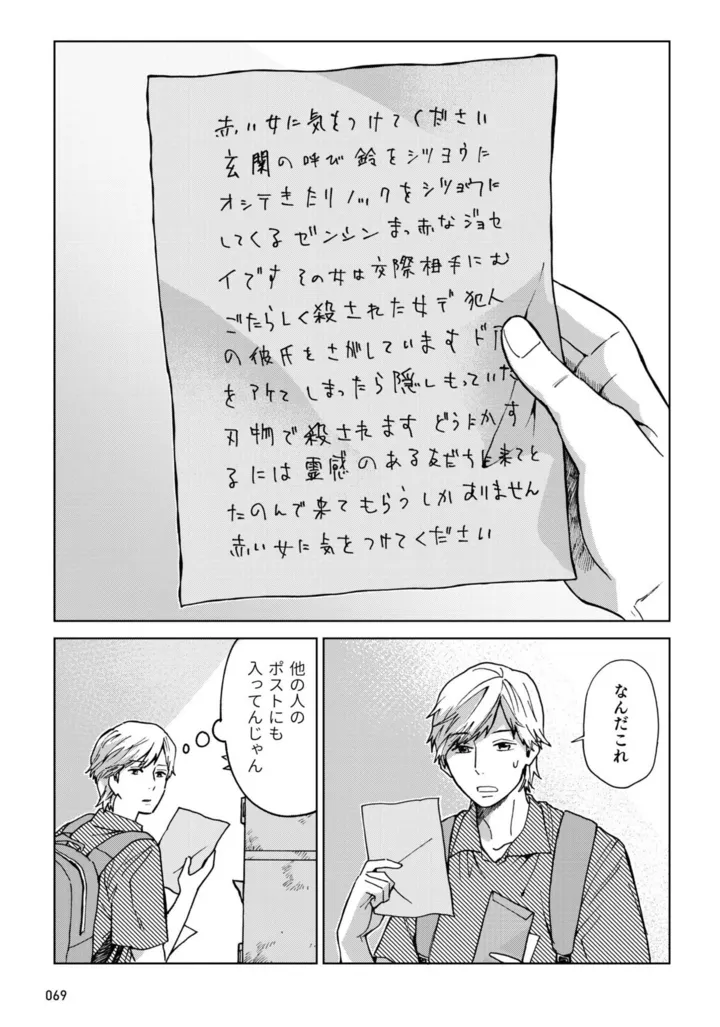 赤い女に気をつけてください
玄関の呼び鈴をシツヨウに
オシテきたりノックをシツョウに
してくるゼンシンまっ赤なジョセ
イです その女は交際相手にむ
ごたらしく殺された女で犯人
の彼氏をさがしています ド
をアケてしまったら隠しもっていた
刃物で殺されます どうにかす
るには霊感のある友だちに来てと
たのんで来てもらうしかありません
赤い女に気をつけてください
なんだこれ
他の人の
ポストにも
入ってんじゃん
069